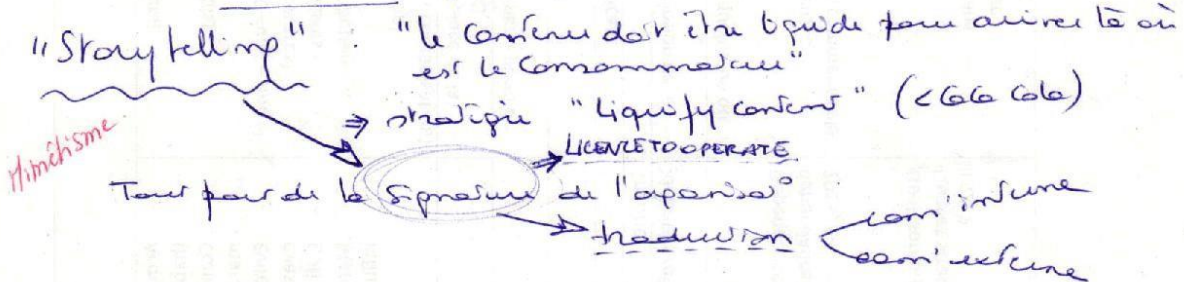 "Storytelling" : "le contenu doit être liquide pour arriver là où
est le consommateur"
⇒ stratégie "Liquify content" (< Coca Cola)
Mimétisme
⇒ LICENCE TO OPERATE
Tout part de la signature de l'organisa°
→ traduction
com' interne
com' externe